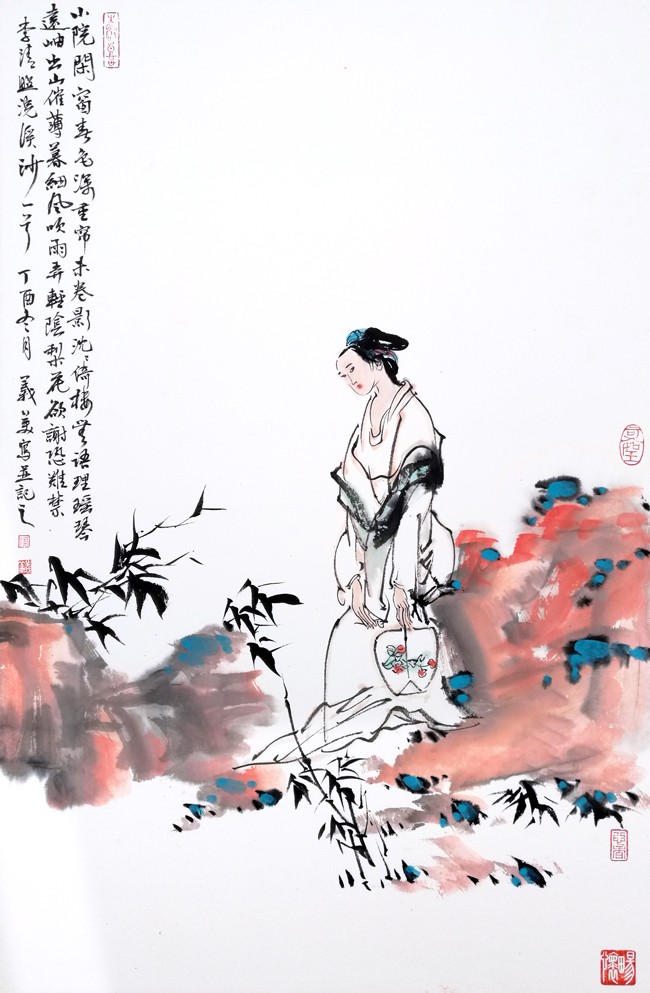 小院閑窗春色深重帘未卷影沈沈倚樓無語理瑶琴
遠岫出山催薄暮細風吹雨弄輕陰梨花欲謝恐難禁
李清照浣溪沙一首 丁酉冬月 義美寫並記之
暢懷